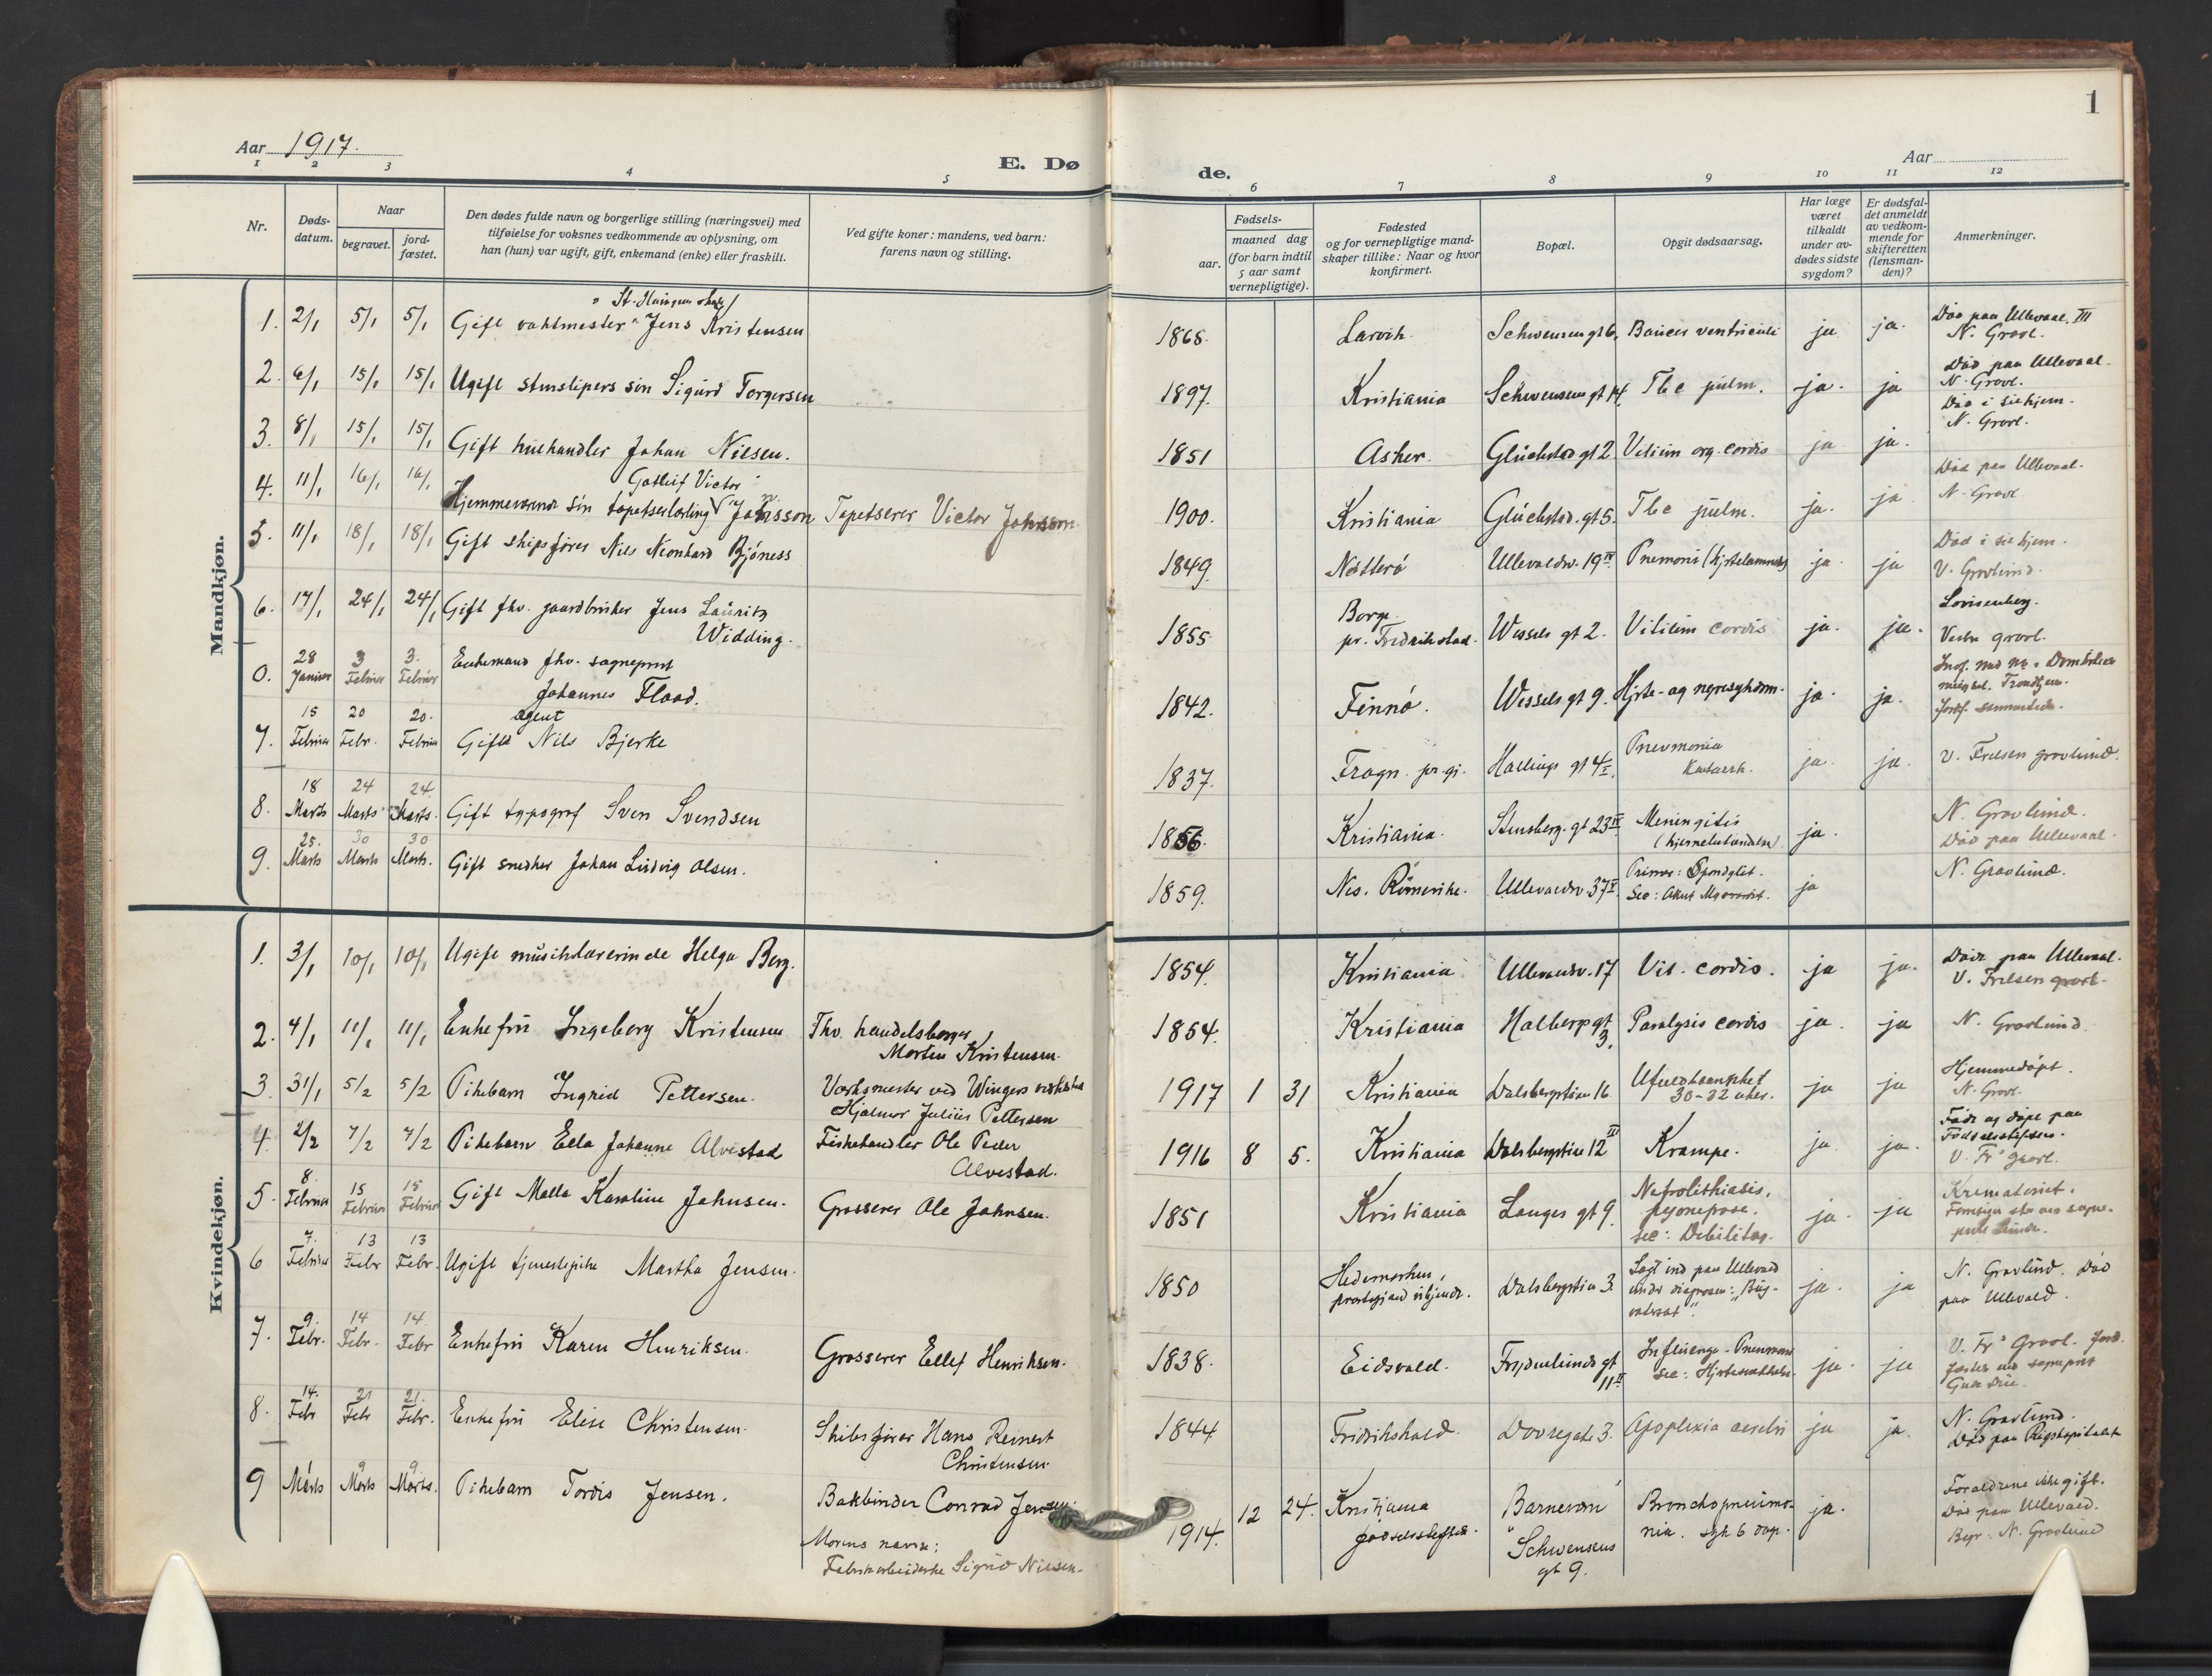 1
Aar 1917.
E. Dø
de.
Aar
1 2 3 4 5 6 7 8 9 10 11 12
Nr.
Døds-
datum.
Naar
begravet.
jord-
fæstet.
Den dødes fulde navn og borgerlige stilling (næringsvei) med
tilføielse for voksnes vedkommende av oplysning, om
han (hun) var ugift, gift, enkemand (enke) eller fraskilt.
Ved gifte koner: mandens, ved barn:
farens navn og stilling.
Fødsels-
aar.
maaned dag
(for barn indtil
5 aar samt
vernepligtige).
Fødested
og for vernepligtige mand-
skaper tillike: Naar og hvor
konfirmert.
Bopæl.
Opgit dødsaarsag.
Har læge
været
tilkaldt
under av-
dødes sidste
sygdom?
Er dødsfal-
det anmeldt
av vedkom-
mende for
skifteretten
(lensman-
den)?
Anmerkninger.
Mandkjøn.
1. 2/1 5/1 5/1 Gift vaktmester Jens Kristensen 1868. Larvik Schwensens gt 6. ventriculi ja ja. Død paa Ullevaal. III
N. Gravl.
2. 6/1 15/1 15/1 Ugift stenslipers søn Sigurd Torgersen 1897. Kristiania Schwensens gt 14. Tbc pulm. ja. ja Død paa Ullevaal.
N. Gravl.
3. 8/1 15/1 15/1 Gift Johan Nilsen. 1851 Asker. Glückstad gt 2 Vitium org. cordis ja ja. Død i sit hjem.
N. Gravl.
Gotleif Victor
4. 11/1 16/1 16/1 Hjemmeværende søn tapetserlærling Johnsson Tapetserer Victor Johnsson. 1900. Kristiania Glückstad. gt 5. Tbc pulm. ja. ja Død paa Ullevaal.
N. Gravl
5. 11/1 18/1 18/1 Gift skipsfører Nils Bjöness 1849. Nøtterø Ullevaalsv. 19 IV Pnemoni (hjertelammelse) ja. ja Død i sit hjem.
V. Gravlund.
6. 17/1 24/1 24/1 Gift fhv. gaardbruker Jens Lauritz
Widding. 1855 Borge
pr. Fredrikstad. Wessels gt 2. Vitium cordis ja. ja. Lovisenberg.
Vestre gravl.
0. 28
Januar 3
Februar 3.
Februar Enkemand fhv. sogneprest
Johannes Flood. 1842. Finnö. Wessels gt 9. Hjerte- og nyresygdom. ja. ja.
7. 15
Februar 20
Febr. 20.
Februar agent
Gift Nils Bjerke 1837. Frogn. pr. gj. Hallings gt 4 I. Pnevmonia
Katarrh. ja. ja. V. Frelsers gravlund.
8. 18
Marts 24
Marts 24.
Marts. Gift typograf Sven Svendsen 1856. Kristiania. Stensberg. gt 23 IV Meningitis
(hjernebetændelse) ja. N. Gravlund.
Død paa Ullevaal.
9. 25.
Marts 30
Marts 30
Marts. Gift snedker Johan Ludvig Olsen. 1859. Nes. Römerike. Ullevaalsv. 37 V Primær: Spondylit.
Sec: Akut ja N. Gravlund.
Kvindekjøn.
1. 3/1 10/1 10/1 Ugift musiklærerinde Helga Berg. 1854. Kristiania Ullevaalsv. 17 Vit. cordis. ja ja. Døde paa Ullevaal.
V. Frelsers gravl.
2. 4/1 11/1 11/1 Enkefru Ingeborg Kristensen Fhv. handelsborger
Morten Kristensen. 1854. Kristiania Holberg gt
3. Paralysis cordis ja. ja N. Gravlund.
3 31/1 5/2 5/2 Pikebarn Ingrid Pettersen. Verksmester ved Wingers
Hjalmar Julius Pettersen 1917 1 31 Kristiania Dalsbergstien 16 Ufuldbaarenhet
30-32 uker. ja ja Hjemmedøpt.
N. Gravl.
4 2/2 7/2 7/2 Pikebarn Ella Johanne Alvestad Fiskehandler Ole Peder
Alvestad. 1916 8 5. Kristiania Dalsbergstien 12 III Krampe. ja. ja. Født og døpt paa
Fødselsstiftelsen.
V. Fr's gravl.
5. 8.
Februar 15
Februar 15
Februar Gift Malla Karoline Johnsen. Grosserer Ole Johnsen. 1851 Kristiania Langes gt 9. Nefrolithiasis,
pyonefrose.
sec: Debilitas. ja. ja Krematoriet.
6 7.
Februar 13
Febr 13
Febr. Ugift tjenestepike Martha Jensen. 1850 Hedemarken,
prestegjæld ukjendt. Dalsbergstien 3. Lagt ind paa Ullevaal
under diagnosen: ja. ja N. Gravlund. Død
paa Ullevaal.
7. 9.
Febr. 14
Febr. 14.
Febr Enkefru Karen Henriksen. Grosserer Ellef Henriksen. 1838. Eidsvold. Frydenlunds gt
11 II Influenza - Pneumoni
sec: Hjertesvækkelse. ja. ja V. Fr's Gravl. Jord-
fæstet ved sogneprest
8. 14.
Febr 21
Febr 21.
Febr. Enkefru Elise Christensen. Skibsfører Hans Reinert
Christensen. 1844 Fridrikshald. Dovregate 3. Apoplexia cerebri ja ja. N. Gravlund.
Død paa Rigshospitalet
9 1
Marts 9
Marts 9.
Marts. Pikebarn Tordis Jensen. Bokbinder Conrad Jensen.
Morens navn:
Fabrikarbeiderske Sigrid Nilsen. 1914. 12 24. Kristiania
fødselsstiftelse. Barnevern
Schwensens
gt 9. Bronchopneumo-
nia. syk 6 dage. ja. Forældrene ikke gift.
Død paa Ullevaal.
Begr. N. Gravlund